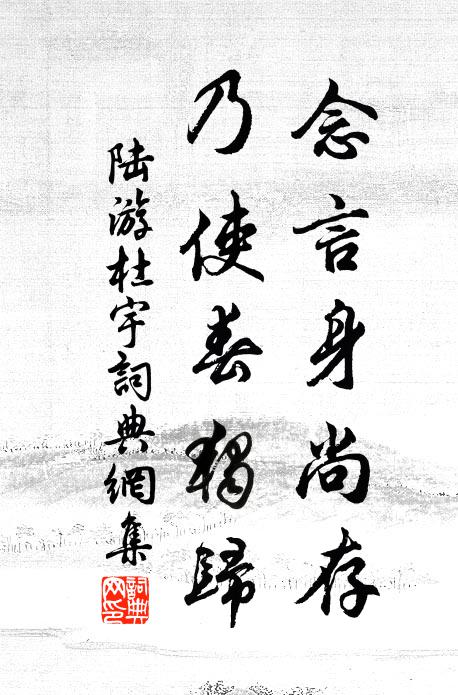 念言身尚存
乃使春獨歸
陸游杜宇詞典網集
詞典
网印